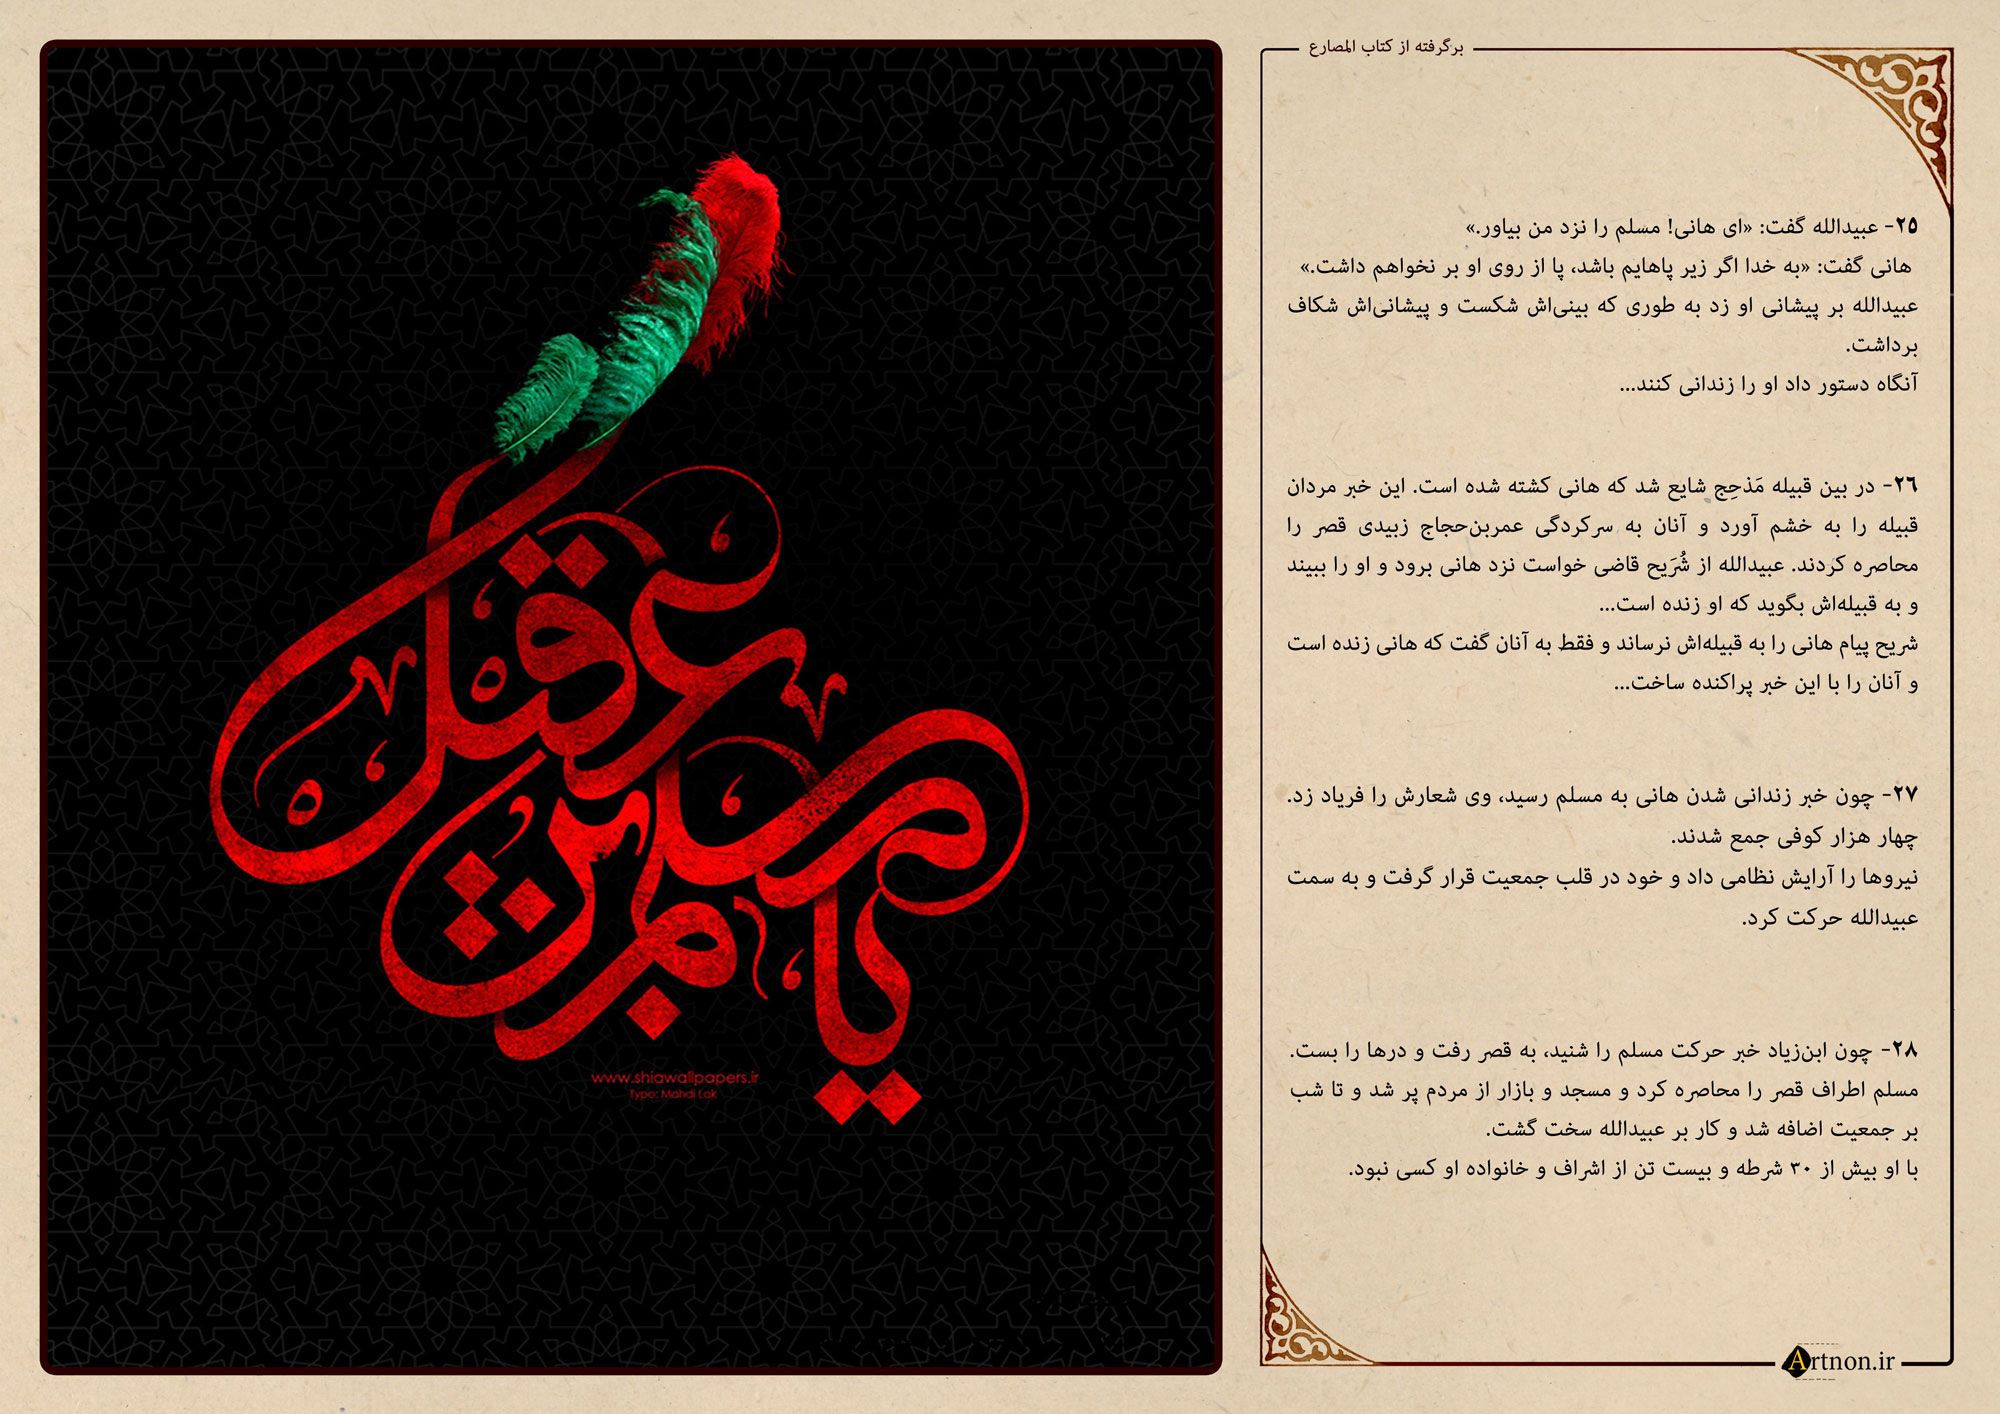 برگرفته از کتاب المصارع
۲۵- عبیدالله گفت: «ای هانی! مسلم را نزد من بیاور.»
هانی گفت: «به خدا اگر زیر پاهایم باشد، پا از روی او بر نخواهم داشت.»
عبیدالله بر پیشانی او زد به طوری که بینی‌اش شکست و پیشانی‌اش شکاف
برداشت.
آنگاه دستور داد او را زندانی کنند...
۲۶- در بین قبیله مَذحِج شایع شد که هانی کشته شده است. این خبر مردان
قبیله را به خشم آورد و آنان به سرکردگی عمربن‌حجاج زبیدی قصر را
محاصره کردند. عبیدالله از شُرَیح قاضی خواست نزد هانی برود و او را ببیند
و به قبیله‌اش بگوید که او زنده است...
شریح پیام هانی را به قبیله‌اش نرساند و فقط به آنان گفت که هانی زنده است
و آنان را با این خبر پراکنده ساخت...
۲۷- چون خبر زندانی شدن هانی به مسلم رسید، وی شعارش را فریاد زد.
چهار هزار کوفی جمع شدند.
نیروها را آرایش نظامی داد و خود در قلب جمعیت قرار گرفت و به سمت
عبیدالله حرکت کرد.
۲۸- چون ابن‌زیاد خبر حرکت مسلم را شنید، به قصر رفت و درها را بست.
مسلم اطراف قصر را محاصره کرد و مسجد و بازار از مردم پر شد و تا شب
بر جمعیت اضافه شد و کار بر عبیدالله سخت گشت.
با او بیش از ۳۰ شرطه و بیست تن از اشراف و خانواده او کسی نبود.
Artnon.ir
یا مسلم بن عقیل
www.shiawallpapers.ir
Typo: Mahdi Lak